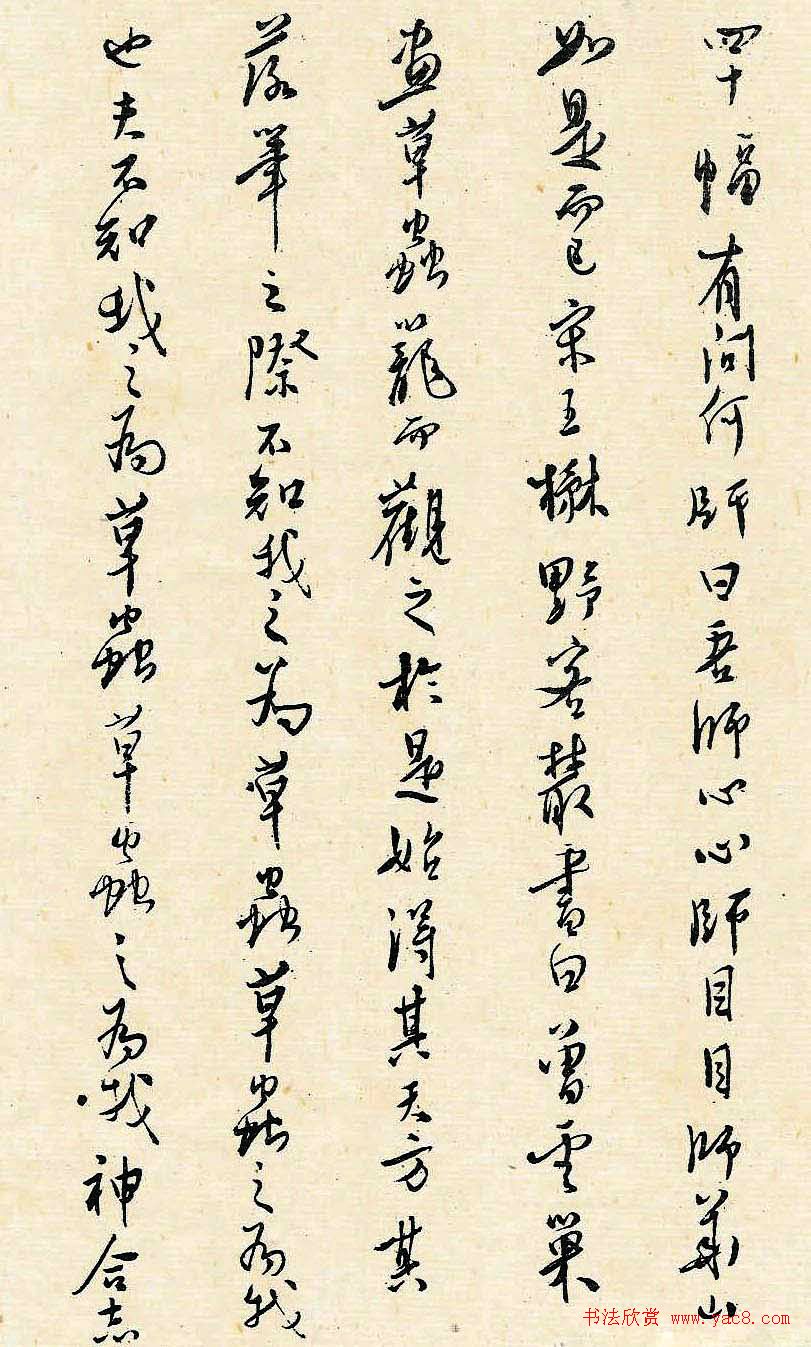 四十幅有问何師曰吾师心心師目目师华山
如是而已宋王楙野客叢書曰曾雲巢
畫草蟲籠而觀之於是始得其天方其
落筆之際不知我之為草蟲草蟲之為我
也夫不知我之為草蟲草蟲之為我神合志
书法欣赏 www.yac8.com